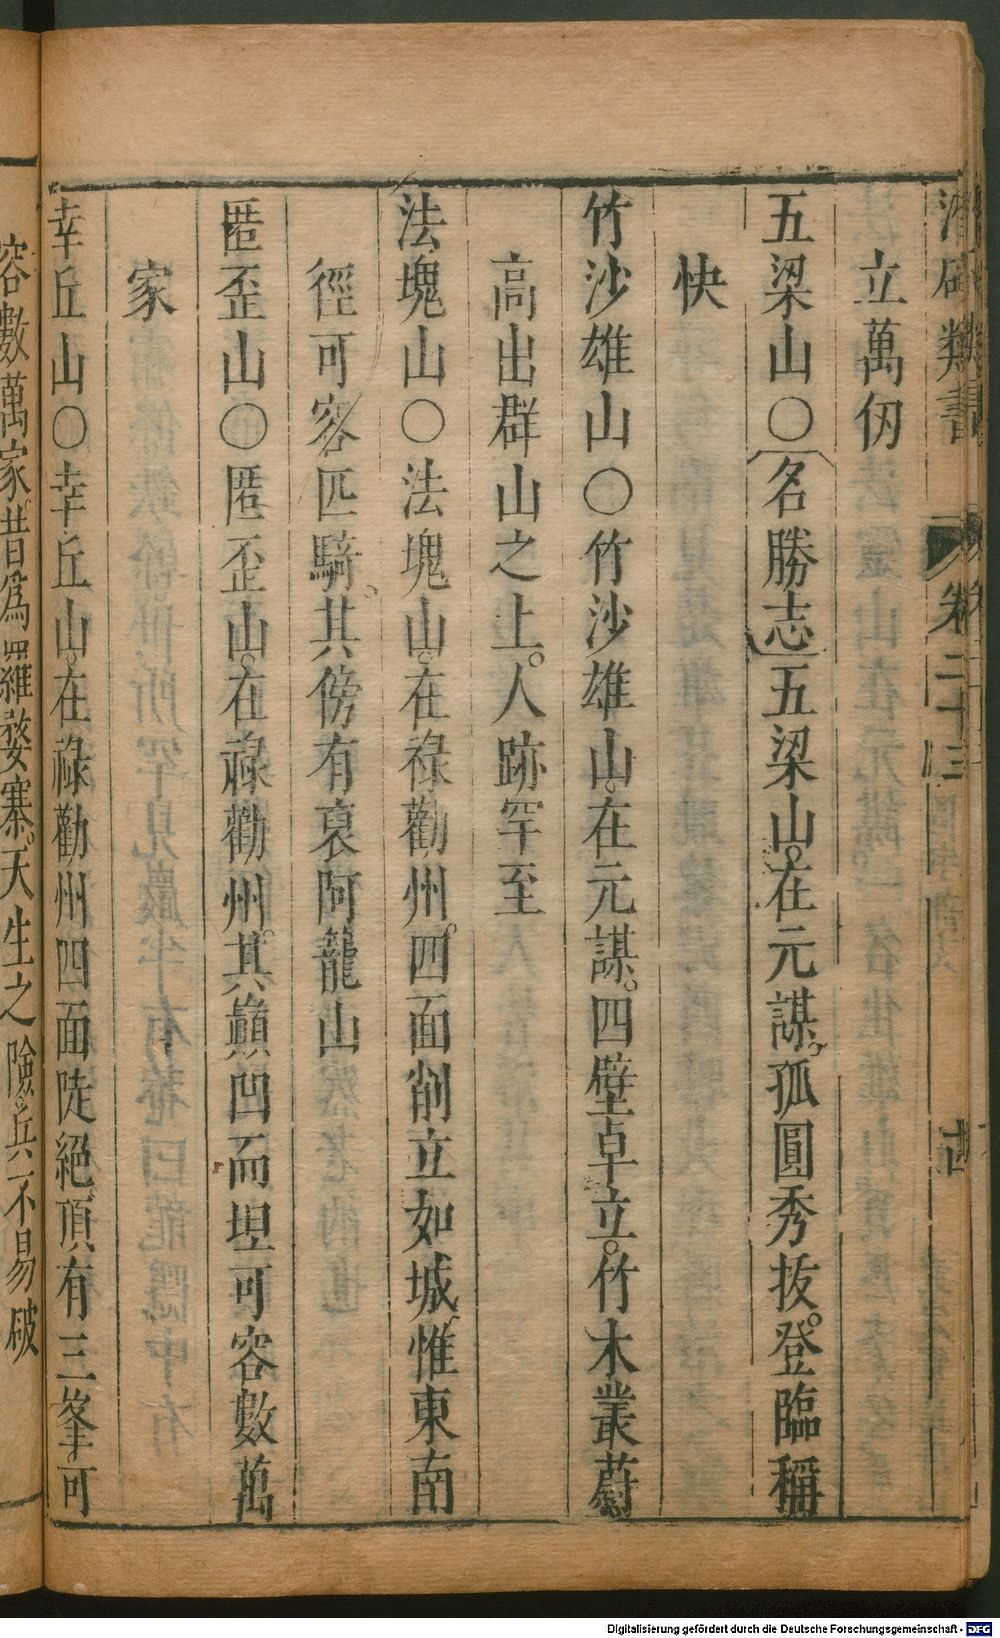 潛确類書 卷二十三 古
立萬仞
五梁山○〔名勝志〕五梁山。在元謀。孤圓秀拔。登臨稱
快
竹沙雄山○竹沙雄山。在元謀。四壁卓立。竹木叢蔚
高出群山之上。人跡罕至
法塊山○法塊山。在祿勸州。四面削立如城。惟東南
徑可容匹騎。其傍有裒阿籠山
匿歪山○匿歪山。在祿勸州。其巔凹而坦可容數萬
家
幸丘山○幸丘山。在祿勸州四面陡絕。頂有三峯可
容數萬家。昔爲羅婺寨。天生之險。兵不易破
Digitalisierung gefördert durch die Deutsche Forschungsgemeinschaft - DFG